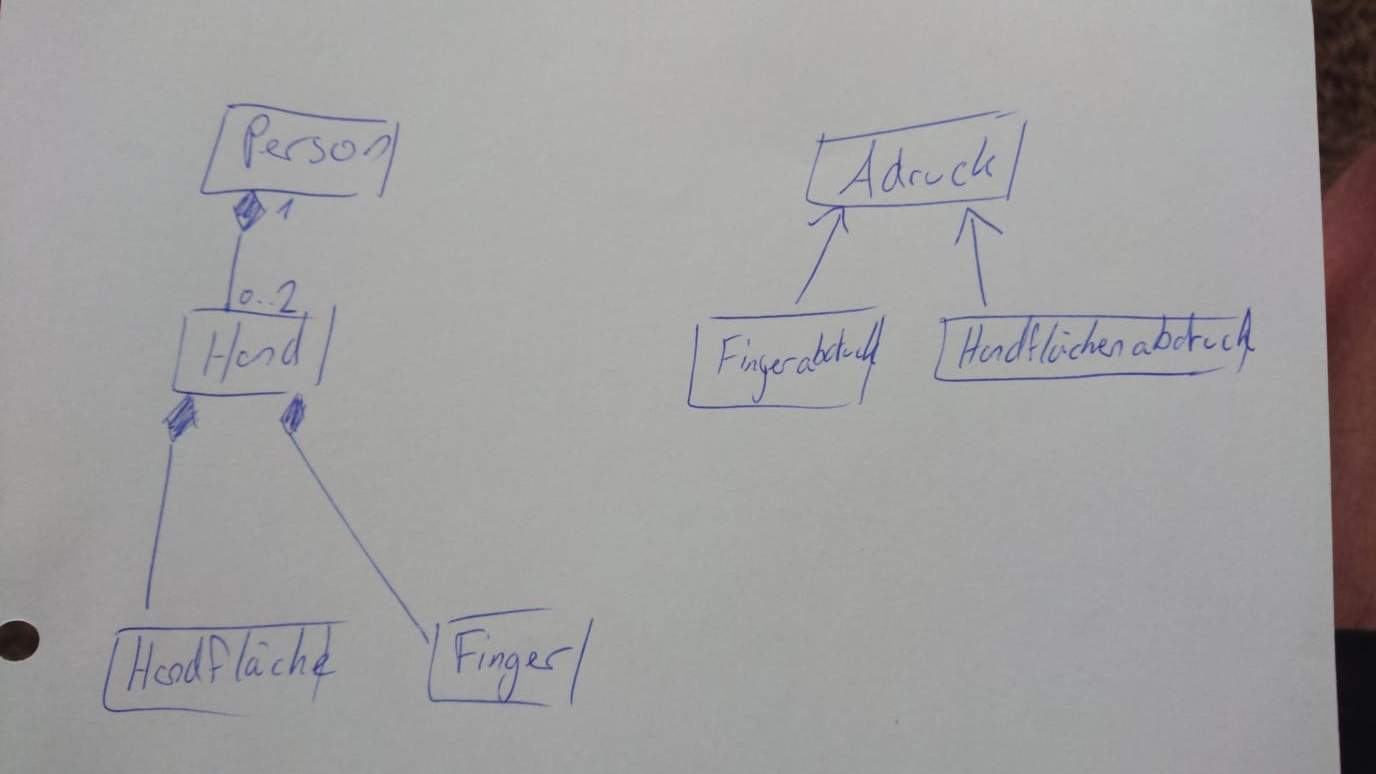 Person
1
0..2
Hand
Handfläche
Finger
Adruck
Fingerabdruck
Handflächenabdruck